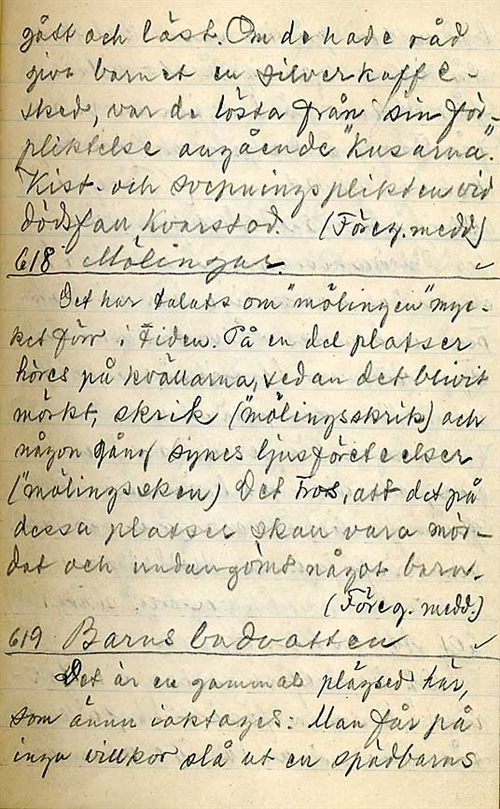 gått och läst. Om de hade råd
giva barnet en silverkaffe-
sked, var de lösta från sin för-
pliktelse angående "kusarna".
Kist- och svepningsplikten vid
dödsfall kvarstod. (Föreg. medd.)
618 Mölingar.
Det har talats om "mölingen" myc-
ket förr i tiden. På en del platser
höres på kvällarna, sedan det blivit
mörkt, skrik ("mölingsskrik) och
någon gång synes ljusföreteelser
("mölingssken) Det tros, att det på
dessa platser skall vara mör-
dat och undangömt något barn.
(Föreg. medd.)
619 Barns badvatten
Det är en gammal plägsed här,
som ännu iakttages: Man får på
inga villkor slå ut en spädbarns